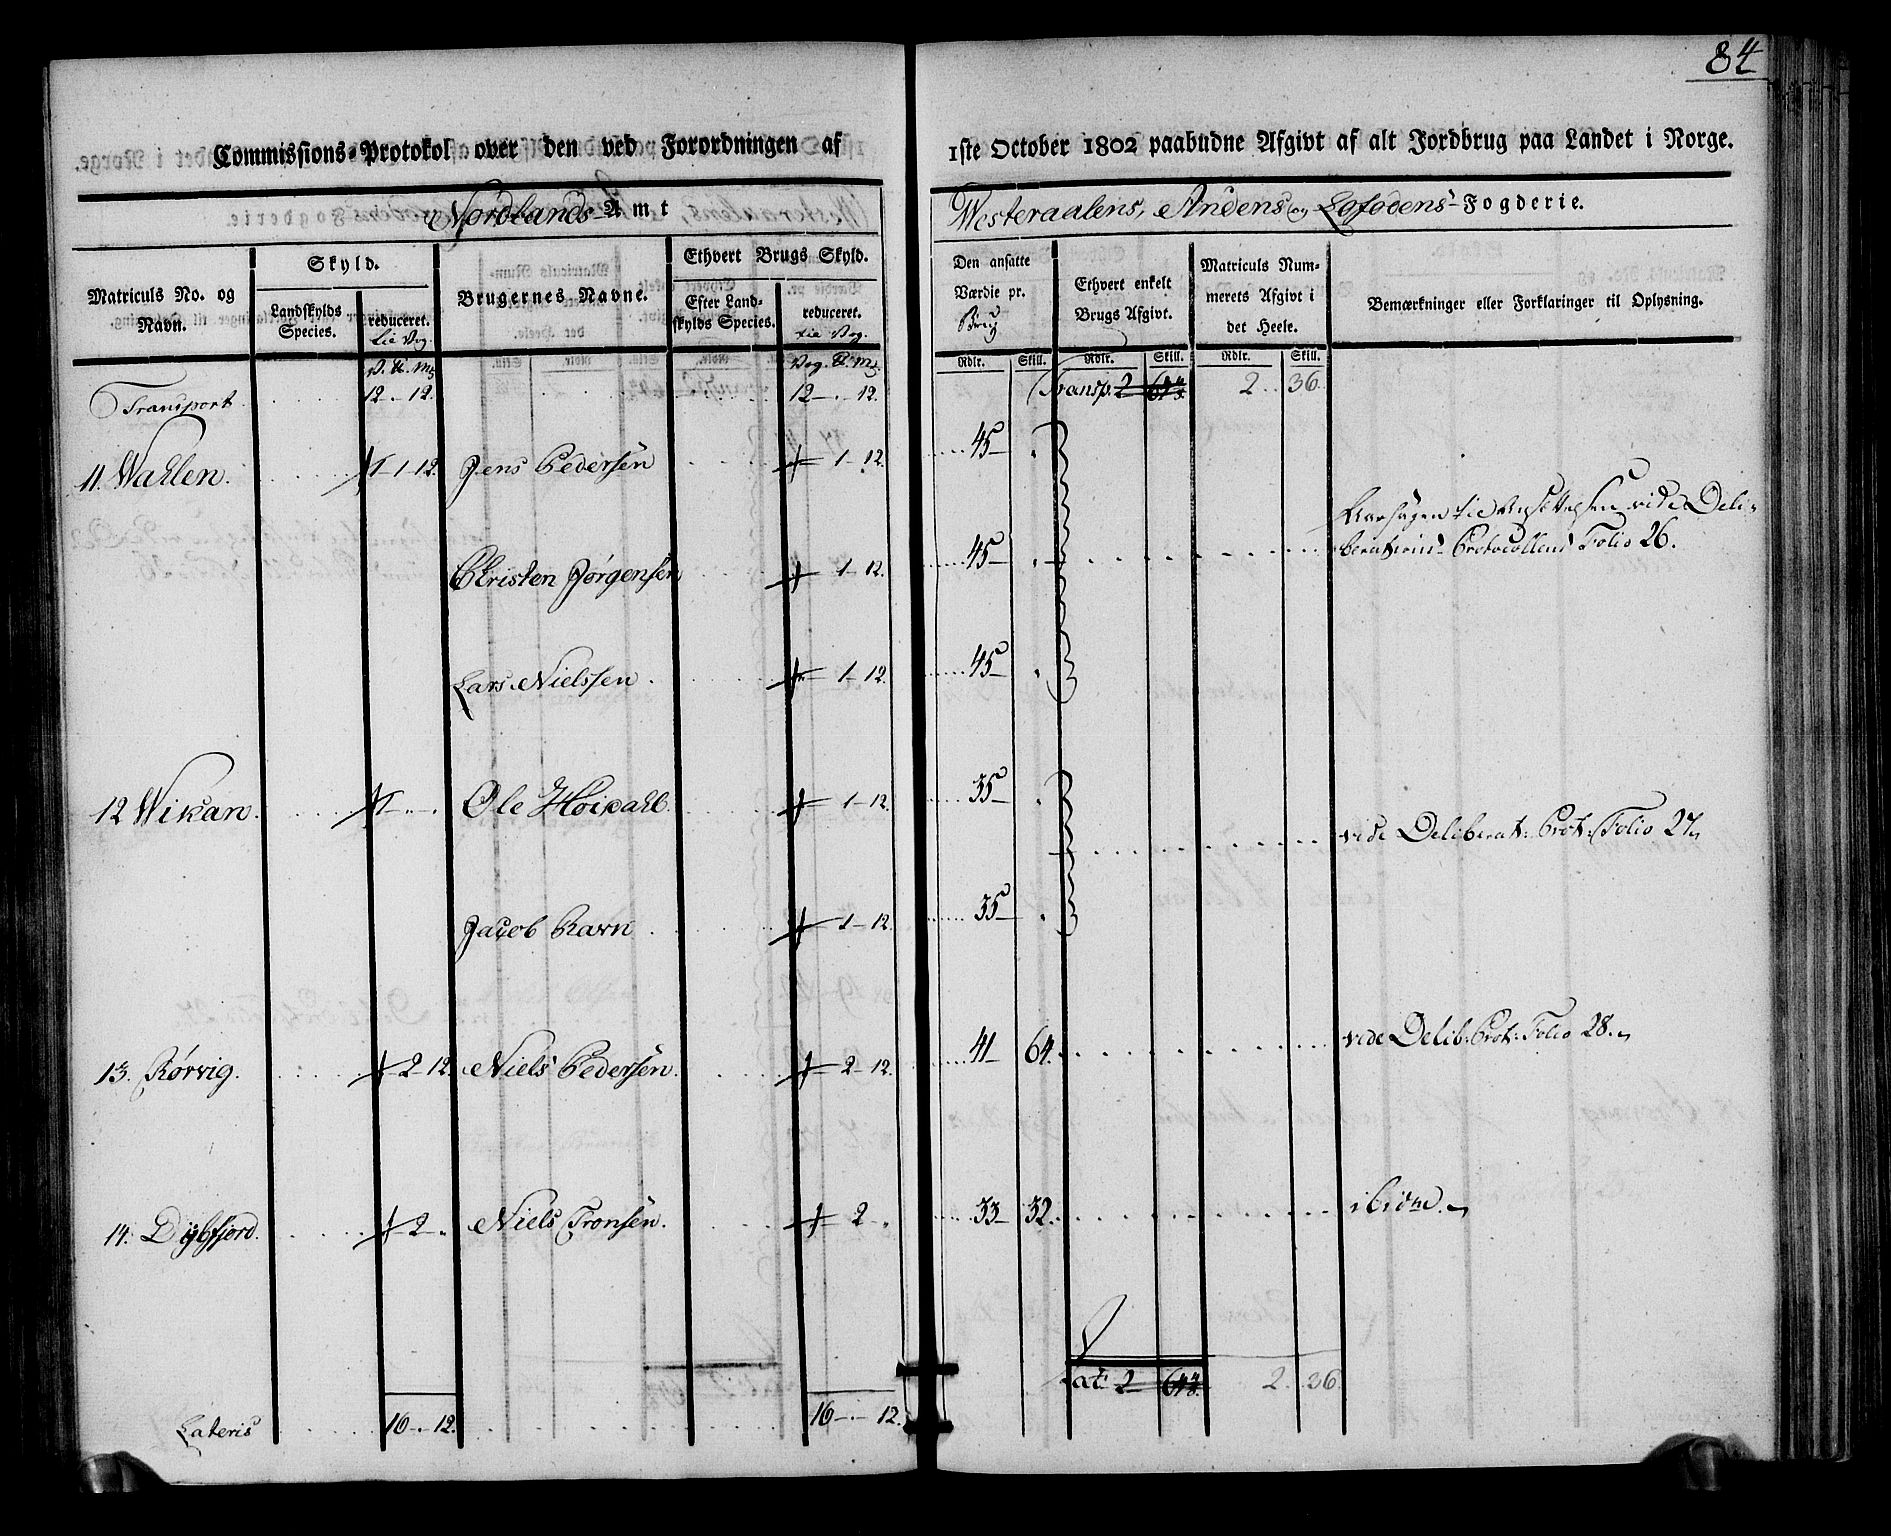 84
Commissions-Protokol over den ved Forordningen af 1ste October 1802 paabudne Afgivt af alt Jordbrug paa Landet i Norge.
Nordlands Amt Westeraalens, Andens og Lofodens Fogderie.
Matriculs No. og Navn.
Skyld.
Landskylds Species.
reduceret. til Vog.
Brugernes Navne.
Ethvert Brugs Skyld.
Efter Landskylds Species.
reduceret. til Vog.
Den ansatte Værdie pr. Brug
Ethvert enkelt Brugs Afgivt.
Matriculs Nummerets Afgivt i det Heele.
Bemærkninger eller Forklaringer til Oplysning.
V. ℔. Mk Vog. ℔. Mk Rdlr. Skill. Rdlr. Skill. Rdlr. Skill.
Transport 12 . 12. 12 - . - 12. Transp. 2 64 2 . . 36.
11. Wahlen. 1 - 1 - 12. Jens Pedersen 1 - 12. 45 - .
Aarsagen til Ansættelsen vide Deli-
Christen Jørgensen 1 - 12. 45 - . berations Protocollens Folio 26.
Lars Nielssen . 1 - 12. 45 - .
12 Wikan. 1 . - . Ole Høidahl 1 - 12. 35 - . vide Deliberat: Prot: Folio 27
Jacob Ravn 1 - 12. 35 - .
13. Rørvig. 2 - 12. Niels Pedersen. 2 - 12. 41 - 64. vide Delib: Prot: Folio 28.
14. Dybfjord. 2 - . Niels Tronsen. 2 - . 33 - 32. ibidm.
Lat: 2 64 2 . 36.
Lateris 16 - . - 12. 16 - . - 12.